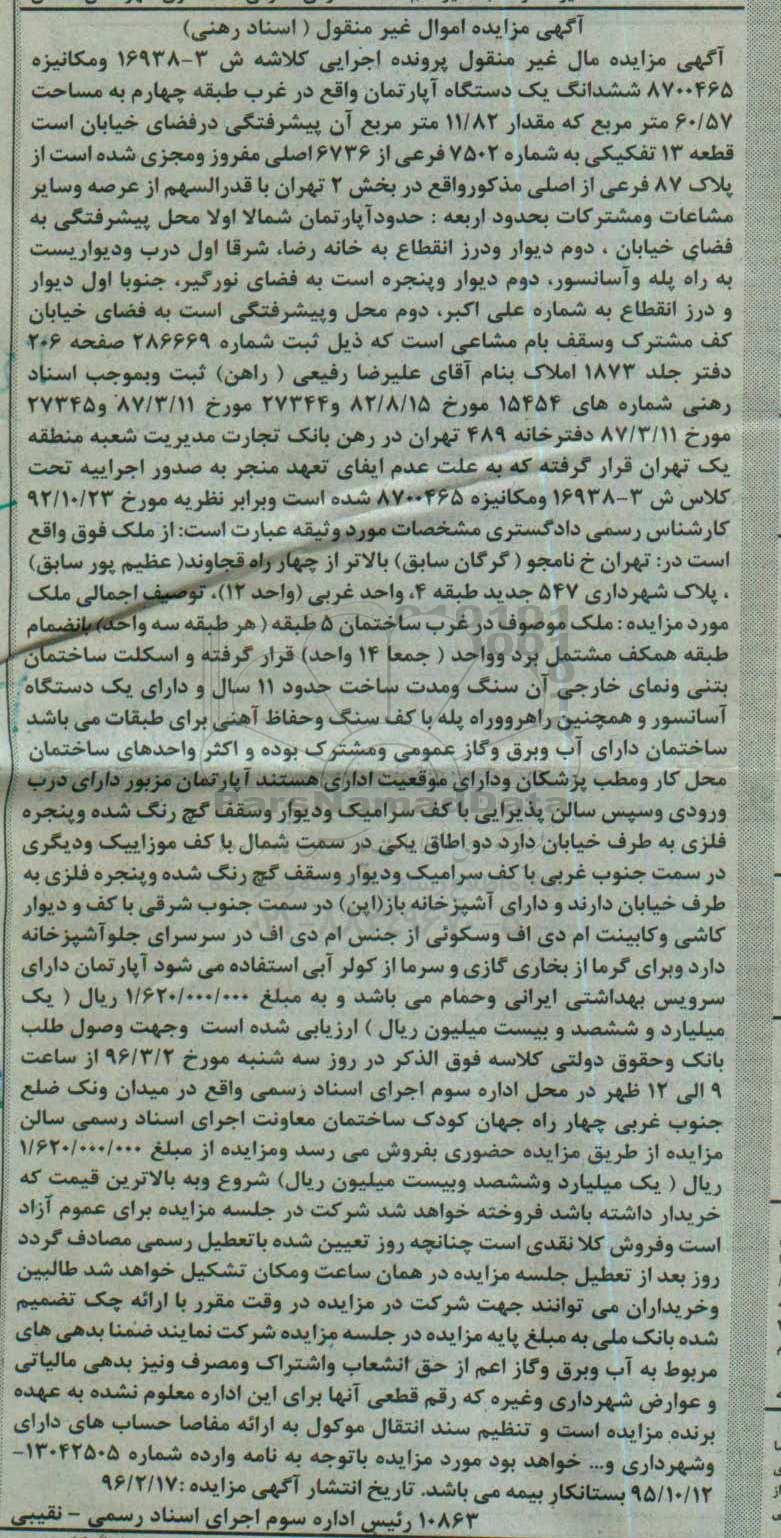 آگهی مزایده اموال غیر منقول ( اسناد رهنی)
آگهی مزایده مال غیر منقول پرونده اجرایی کلاشه ش ۳-۱۶۹۳۸ ومکانیزه
۸۷۰۰۴۶۵ ششدانگ یک دستگاه آپارتمان واقع در غرب طبقه چهارم به مساحت
۶۰/۵۷ متر مربع که مقدار ۱۱/۸۲ متر مربع آن پیشرفتگی درفضای خیابان است
قطعه ۱۳ تفکیکی به شماره ۷۵۰۲ فرعی از ۶۷۳۶ اصلی مفروز ومجزی شده است از
پلاک ۸۷ فرعی از اصلی مذکورواقع در بخش ۲ تهران با قدرالسهم از عرصه وسایر
مشاعات ومشترکات بحدود اربعه : حدودآپارتمان شمالا اولا محل پیشرفتگی به
فضای خیابان ، دوم دیوار ودرز انقطاع به خانه رضا، شرقا اول درب ودیواریست
به راه پله وآسانسور، دوم دیوار وپنجره است به فضای نورگیر، جنوبا اول دیوار
و درز انقطاع به شماره علی اکبر، دوم محل وپیشرفتگی است به فضای خیابان
کف مشترک وسقف بام مشاعی است که ذیل ثبت شماره ۲۸۶۶۶۹ صفحه ۲۰۶
دفتر جلد ۱۸۷۳ املاک بنام آقای علیرضا رفیعی ( راهن) ثبت وبموجب اسناد
رهنی شماره های ۱۵۴۵۴ مورخ ۸۲/۸/۱۵ و۲۷۳۴۴ مورخ ۸۷/۳/۱۱ و۲۷۳۴۵
مورخ ۸۷/۳/۱۱ دفترخانه ۴۸۹ تهران در رهن بانک تجارت مدیریت شعبه منطقه
یک تهران قرار گرفته که به علت عدم ایفای تعهد منجر به صدور اجراییه تحت
کلاس ش ۳-۱۶۹۳۸ ومکانیزه ۸۷۰۰۴۶۵ شده است وبرابر نظریه مورخ ۹۲/۱۰/۲۳
کارشناس رسمی دادگستری مشخصات مورد وثیقه عبارت است: از ملک فوق واقع
است در: تهران خ نامجو ( گرگان سابق) بالاتر از چهار راه قجاوند( عظیم پور سابق)
، پلاک شهرداری ۵۴۷ جدید طبقه ۴، واحد غربی (واحد ۱۲)، توصیف اجمالی ملک
مورد مزایده : ملک موصوف در غرب ساختمان ۵ طبقه ( هر طبقه سه واحد) بانضمام
طبقه همکف مشتمل برد وواحد ( جمعا ۱۴ واحد) قرار گرفته و اسکلت ساختمان
بتنی ونمای خارجی آن سنگ ومدت ساخت حدود ۱۱ سال و دارای یک دستگاه
آسانسور و همچنین راهرووراه پله با کف سنگ وحفاظ آهنی برای طبقات می باشد
ساختمان دارای آب وبرق وگاز عمومی ومشترک بوده و اکثر واحدهای ساختمان
محل کار ومطب پزشکان ودارای موقعیت اداری هستند آپارتمان مزبور دارای درب
ورودی وسپس سالن پذیرایی با کف سرامیک ودیوار وسقف گچ رنگ شده وپنجره
فلزی به طرف خیابان دارد دو اطاق یکی در سمت شمال با کف موزاییک ودیگری
در سمت جنوب غربی با کف سرامیک ودیوار وسقف گچ رنگ شده وپنجره فلزی به
طرف خیابان دارند و دارای آشپزخانه باز(اپن) در سمت جنوب شرقی با کف و دیوار
کاشی وکابینت ام دی اف وسکوئی از جنس ام دی اف در سرسرای جلوآشپزخانه
دارد وبرای گرما از بخاری گازی و سرما از کولر آبی استفاده می شود آپارتمان دارای
سرویس بهداشتی ایرانی وحمام می باشد و به مبلغ ۱/۶۲۰/۰۰۰/۰۰۰ ریال ( یک
میلیارد و ششصد و بیست میلیون ریال ) ارزیابی شده است وجهت وصول طلب
بانک وحقوق دولتی کلاسه فوق الذکر در روز سه شنبه مورخ ۹۶/۳/۲ از ساعت
۹ الی ۱۲ ظهر در محل اداره سوم اجرای اسناد رسمی واقع در میدان ونک ضلع
جنوب غربی چهار راه جهان کودک ساختمان معاونت اجرای اسناد رسمی سالن
مزایده از طریق مزایده حضوری بفروش می رسد ومزایده از مبلغ ۱/۶۲۰/۰۰۰/۰۰۰
ریال ( یک میلیارد وششصد وبیست میلیون ریال) شروع وبه بالاترین قیمت که
خریدار داشته باشد فروخته خواهد شد شرکت در جلسه مزایده برای عموم آزاد
است وفروش کلا نقدی است چنانچه روز تعیین شده باتعطیل رسمی مصادف گردد
روز بعد از تعطیل جلسه مزایده در همان ساعت ومکان تشکیل خواهد شد طالبین
وخریداران می توانند جهت شرکت در مزایده در وقت مقرر با ارائه چک تضمیم
شده بانک ملی به مبلغ پایه مزایده در جلسه مزایده شرکت نمایند ضمنا بدهی های
مربوط به آب وبرق وگاز اعم از حق انشعاب واشتراک ومصرف ونیز بدهی مالیاتی
و عوارض شهرداری وغیره که رقم قطعی آنها برای این اداره معلوم نشده به عهده
برنده مزایده است و تنظیم سند انتقال موکول به ارائه مفاصا حساب های دارای
وشهرداری و... خواهد بود مورد مزایده باتوجه به نامه وارده شماره ۱۳۰۴۲۵۰۵-
۹۵/۱۰/۱۲ بستانکار بیمه می باشد. تاریخ انتشار آگهی مزایده :۹۶/۲/۱۷
۱۰۸۶۳ رئیس اداره سوم اجرای اسناد رسمی - نقیبی
ParsNamadData